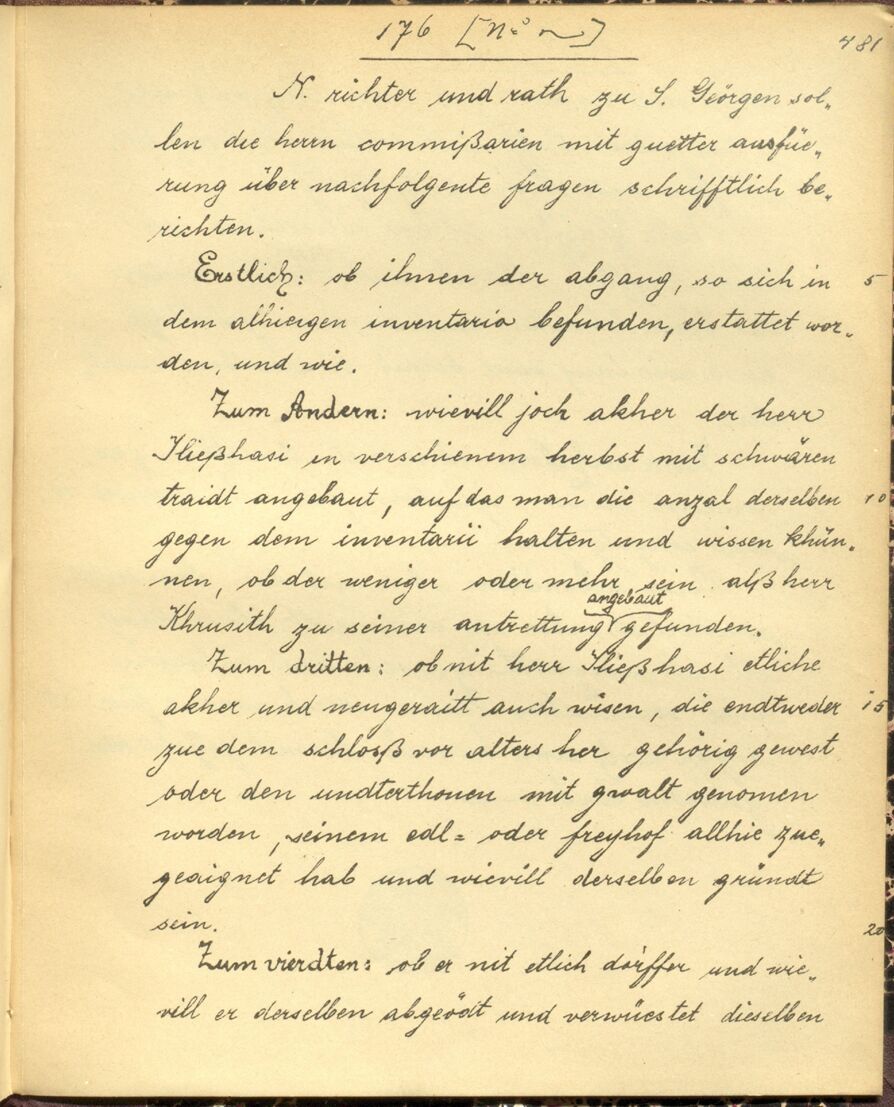 176 [N=o ~]
481
N. richter und rath zu S. Geörgen sol„
len die herrn commißarien mit guetter ausfüe„
rung über nachfolgente fragen schrifftlich be„
richten.
Erstlich: ob ihnen der abgang, so sich in 5
dem alhiergen inventario befunden, erstattet wor„
den, und wie.
Zum Andern: wievill joch akher der herr
Iließhasi in verschienem herbst mit schwären
traidt angebaut, auf das man die anzal derselben 10
gegen dem inventarii halten und wissen khün„
nen, ob der weniger oder mehr sein alß herr
angebaut
Khrusith zu seiner antrettung gefunden.
Zum dritten: ob nit herr Iließhasi etliche
akher und neugeraitt auch wisen, die endtweder 15
zue dem schloß vor alters her gehörig gewest
oder den undterthonen mit gwalt genomen
worden, seinem edl= oder freyhof allhie zue„
geaignet hab und wievill derselben gründt
sein. 20
Zum vierdten: ob er nit etlich dörffer und wie„
vill er derselben abgeödt und verwüestet dieselben